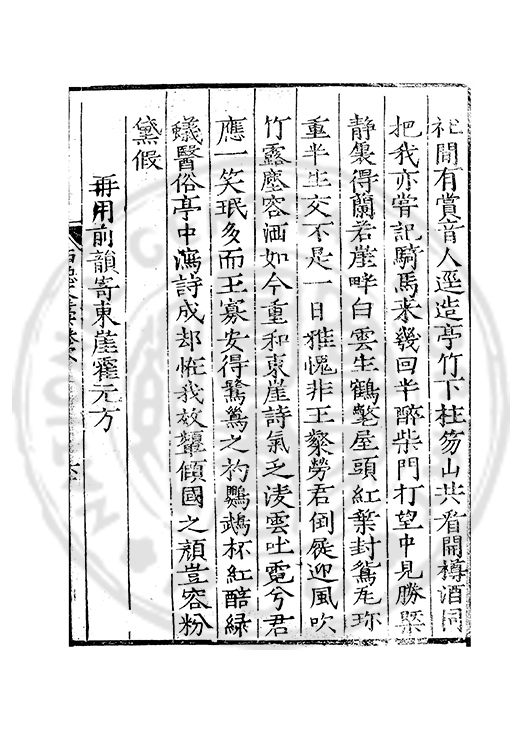 社間有賞音人逕造亭竹下柱笏山共看開樽酒同
把我亦嘗記騎馬来幾回半醉柴門打望中見勝槩
静裏得蘭若崖畔白雲生鶴氅屋頭紅葉封鴛瓦珎
重半生交不是一日雅愧非王粲勞君倒屣迎風吹
竹露塵容洒如今重和東崖詩氣乏凌雲吐霓兮君
應一笑珉多而玉寡安得鷺鷥之杓鸚鵡杯紅醅緑
蟻醫俗亭中瀉詩成却恠我效顰傾國之顔豈容粉
黛假
再用前韻寄東崖霍元方